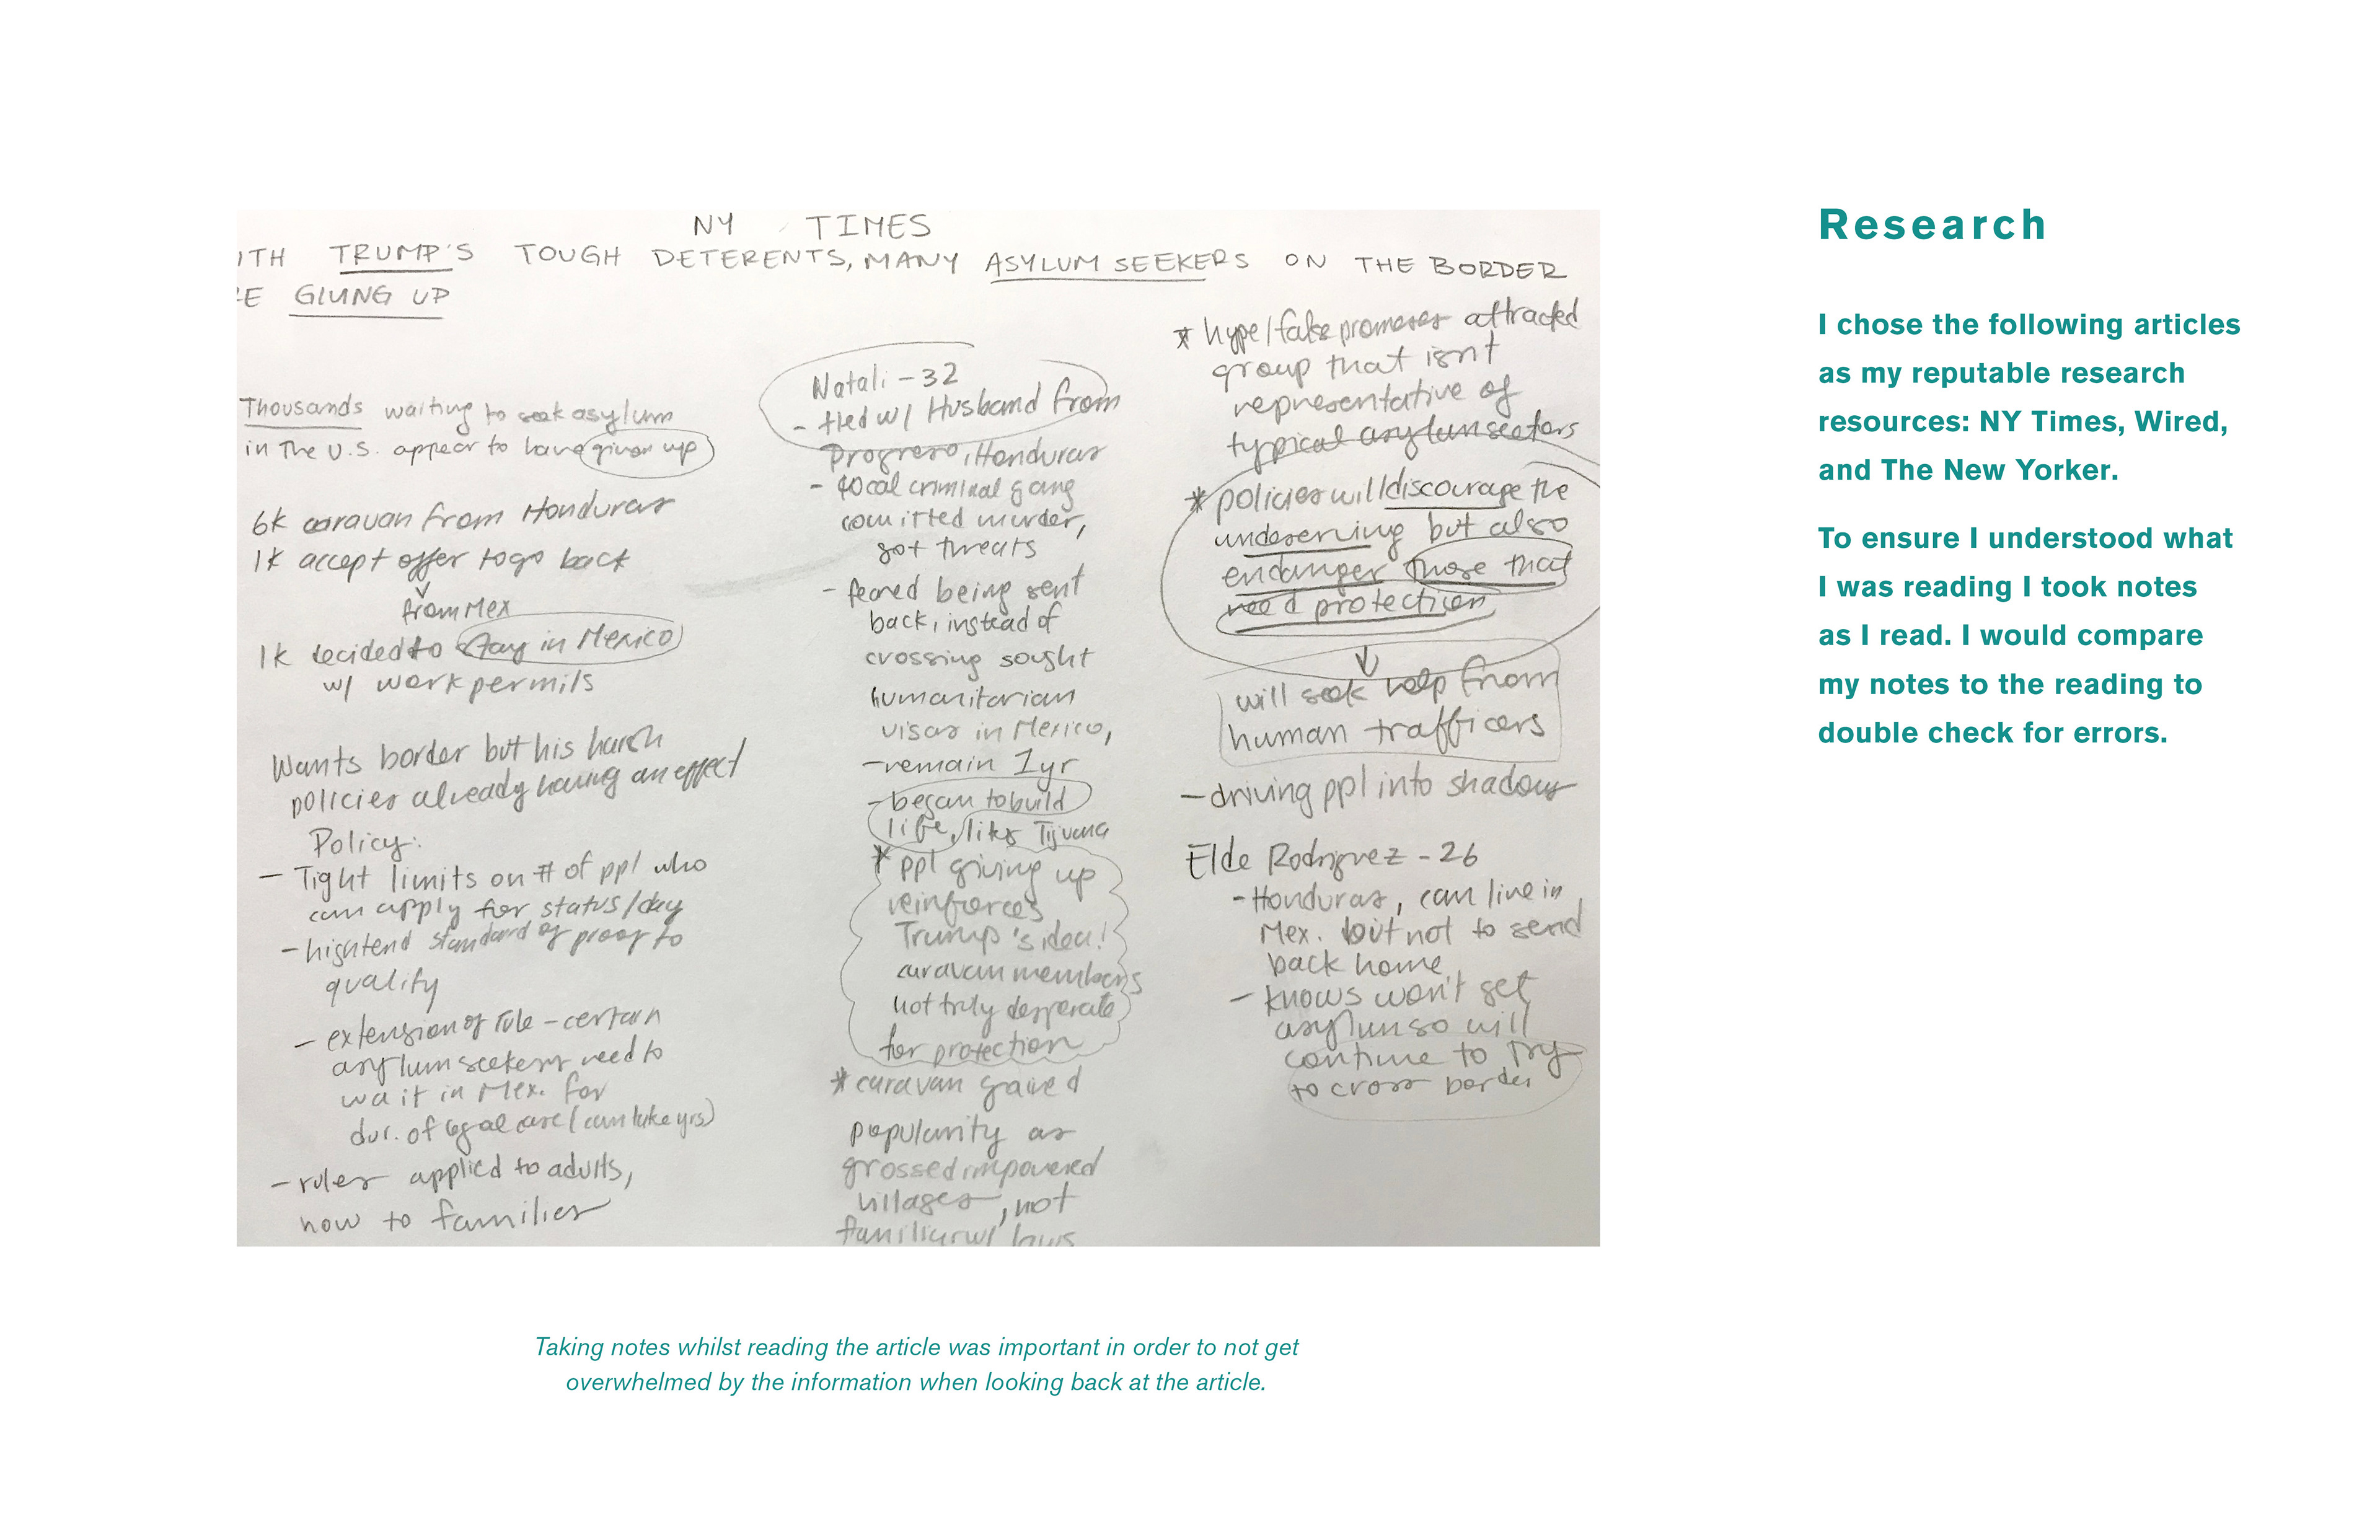 NY TIMES
ITH TRUMP'S TOUGH DETERENTS, MANY ASYLUM SEEKERS ON THE BORDER
RE GIVING UP
Thousands waiting to seek asylum
in The U.S. appear to have given up
6k caravan from Honduras
1k accept offer to go back
from Mex
1k decided to stay in Mexico
w/ work permits
Wants border but his harsh
policies already having an effect
Policy:
- Tight limits on # of ppl who
can apply for status/day
- hightend standard of proof to
qualify
- extension of rule - certain
asylum seekers need to
wait in Mex. for
dur. of legal case (can take yrs)
- rules applied to adults,
now to families
Natali - 32
- fled w/ Husband from
Progreso, Honduras
- local criminal gang
comitted murder,
got threats
- feared being sent
back, instead of
crossing sought
humanitarian
visas in Mexico,
- remain 1yr
- began to build
life, like Tijuana
* ppl giving up
reinforces
Trump's idea!
caravan members
not truly desperate
for protection
* caravan gained
popularity as
villages, not
familiar w/ laws
* hype/false promeses attracted
group that isn't
representative of
typical asylum seekers
* policies will discourage the
undeserving but also
endanger those that
need protection
will seek help from
human trafficers
- driving ppl into shadows
Elde Rodriguez - 26
- Honduras, can live in
Mex. but not to send
back home
- knows won't get
asylum so will
continue to try
to cross border
Taking notes whilst reading the article was important in order to not get
overwhelmed by the information when looking back at the article.
Research
I chose the following articles
as my reputable research
resources: NY Times, Wired,
and The New Yorker.
To ensure I understood what
I was reading I took notes
as I read. I would compare
my notes to the reading to
double check for errors.